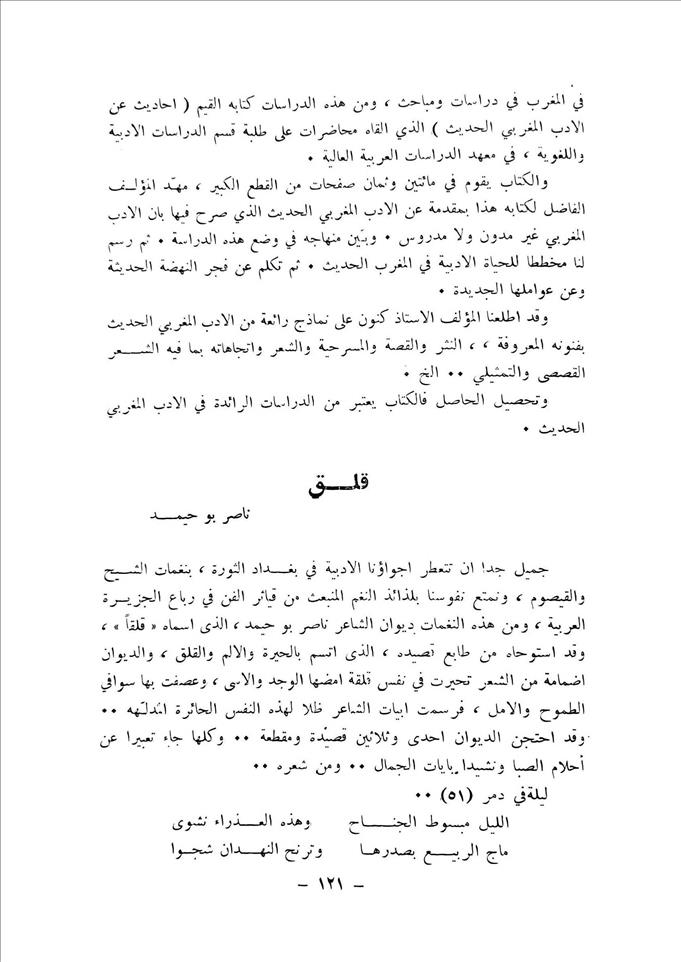 في المغرب في دراسات ومباحث ، ومن هذه الدراسات كتابه القيم ( احاديث عن
الادب المغربي الحديث ) الذي القاه محاضرات على طلبة قسم الدراسات الادبية
واللغوية ، في معهد الدراسات العربية العالية ٠
والكتاب يقوم في مائتين وثمان صفحات من القطع الكبير ، مهّد المؤلـف
الفاضل لكتابه هذا بمقدمة عن الادب المغربي الحديث الذي صرح فيها بان الادب
المغربي غير مدون ولا مدروس ٠ وبيّن منهاجه في وضع هذه الدراسة ٠ ثم رسم
لنا مخططا للحياة الادبية في المغرب الحديث ٠ ثم تكلم عن فجر النهضة الحديثة
وعن عواملها الجديدة ٠
وقد اطلعنا المؤلف الاستاذ كنون على نماذج رائعة من الادب المغربي الحديث
بفنونه المعروفة ، ، النثر والقصة والمسرحية والشعر واتجاهاته بما فيه الشـــعر
القصصى والتمثيلي ٠٠ الخ ٠
وتحصيل الحاصل فالكتاب يعتبر من الدراسات الرائدة في الادب المغربي
الحديث ٠
قلـــق
ناصر بو حيمــد
جميل جدا ان تتعطر اجواؤنا الادبية في بغــداد الثورة ، بنغمات الشــيح
والقيصوم ، ونمتع نفوسنا بلذائذ النغم المنبعث من قيائر الفن في رباع الجزيــرة
العربية ، ومن هذه النغمات ديوان الشاعر ناصر بو حيمد ، الذى اسماه « قلقاً » ،
وقد استوحاه من طابع قصيده ، الذى اتسم بالحيرة والالم والقلق ، والديوان
اضمامة من الشعر تحيرت في نفس قلقة امضها الوجد والاسى ، وعصفت بها سوافي
الطموح والامل ، فرسمت ابيات الشاعر ظلا لهذه النفس الحائرة المدلّهه ٠٠
وقد احتجن الديوان احدى وثلاثين قصيدة ومقطعة ٠٠ وكلها جاء تعبيرا عن
أحلام الصبا ونشيدا بايات الجمال ٠٠ ومن شعره ٠٠
ليلة في دمر (٥١) ٠٠
الليل مبسوط الجنـــاح وهذه العــذراء نشوى
ماج الربيــع بصدرها وترنح النهــدان شجـوا
– ١٢١ –